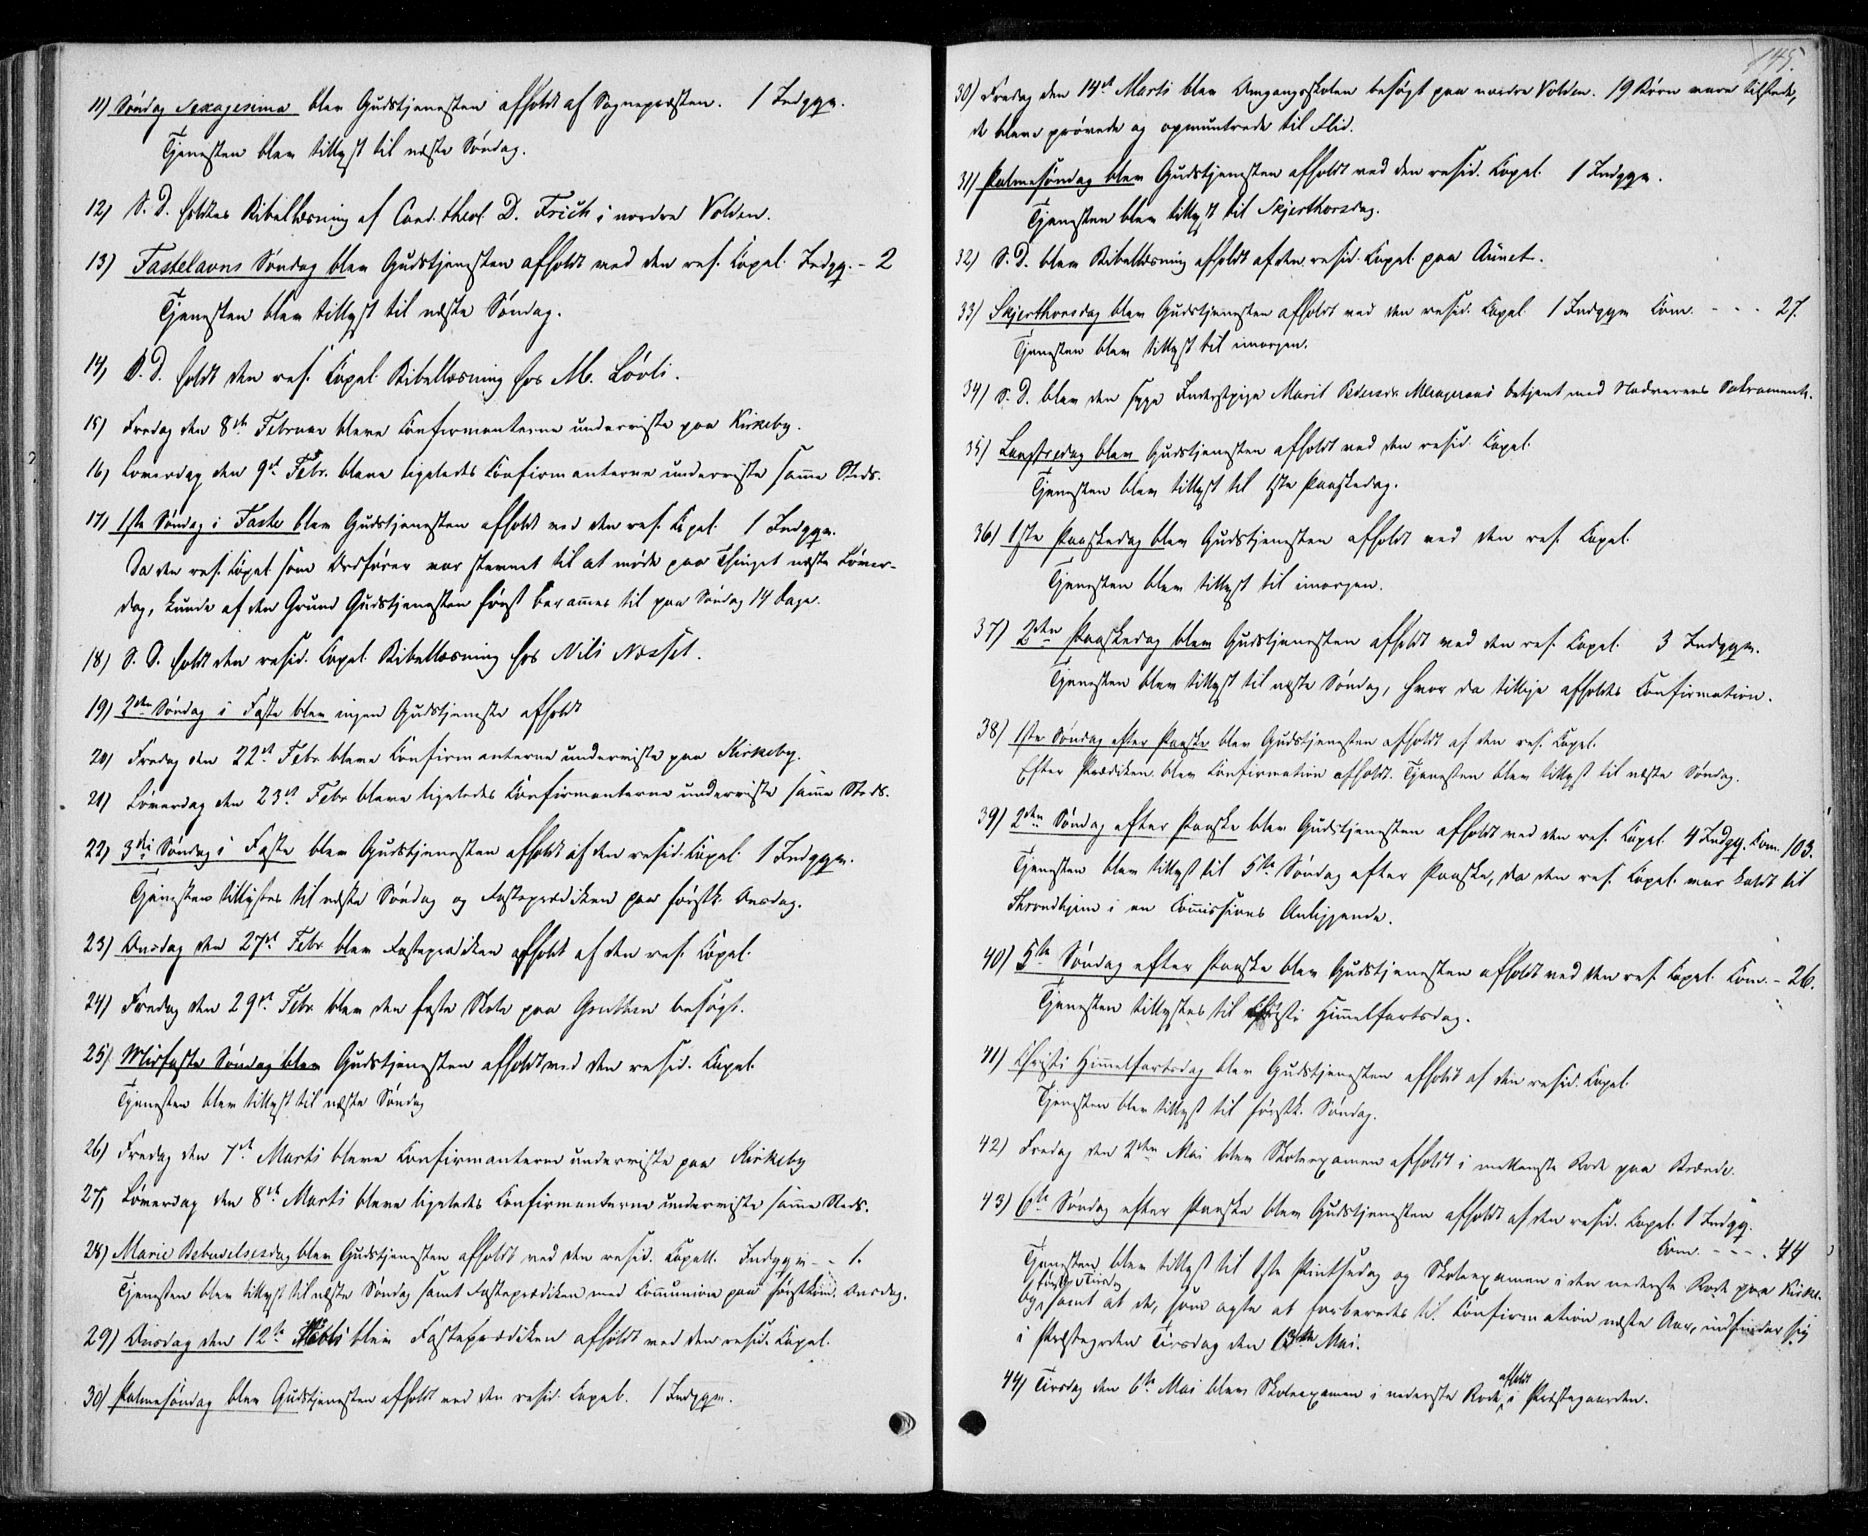 11) Søndag Sexagesima blev Gudstjenesten afholdt af Sognepræsten. 1 Indggk.
Tjenesten blev tillyst til næste Søndag.
12) S. D. holdtes Bibellæsning af Cand. theol. D. Frich i nordre Volden.
13) Fastelavns Søndag blev Gudstjenesten afholdt med den res. Capel. Indgg. - 2
Tjenesten blev tillyst til næste Søndag.
14) S. D. holdt den res. Capel. Bibellæsning hos M. Løvli.
15) Fredag den 8de Februar bleve Confirmanterne underviste paa Kirkeby.
16) Løverdag den 9de Febr. bleve ligeledes Confirmanterne underviste samme Steds.
17) 1ste Søndag i Faste blev Gudstjenesten afholdt ved den res. Capel. 1 Indggk.
Da den res. Capel. som Ordfører var stevnet til at møde paa Thinget næste Løver-
dag, kunde af den Grund Gudstjenesten først berammes til paa Søndag 14 Dage.
18) S. D. holdt den resid. Capel. Bibellæsning hos Nils Næsset.
19) 2den Søndag i Faste blev ingen Gudstjeneste afholdt
20) Fredag den 22de Febr bleve Confirmanterne underviste paa Kirkeby.
21) Løverdag den 23de Febr bleve ligeledes Confirmanterne underviste samme Steds.
22) 3die Søndag i Faste blev Gudstjenesten afholdt af den resid. Capel. 1 Indggk.
Tjenesten tillystes til næste Søndag og Fasteprædiken paa førstk. Onsdag.
23) Onsdag den 27de Febr blev Fasteprædiken afholdt af den res. Capel.
24) Fredag den 29de Febr blev den faste Skole paa besøgt.
25) Midfaste Søndag blev Gudstjenesten afholdt ved den resid. Capel.
Tjenesten blev tillyst til næste Søndag
26) Fredag den 7de Marti bleve Confirmanterne underviste paa Kirkeby
27) Løverdag den 8de Marti bleve ligeledes Confirmanterne underviste samme Steds.
28) Marie Bebudelsesdag blev Gudstjenesten afholdt ved den resid. Capell. Indggk - - 1.
Tjenesten blev tillyst til næste Søndag samt Fasteprædiken med Communion paa førstkom. Onsdag.
29) Onsdag den 12te blev Fasteprædiken afholdt ved den resid. Capel.
30) Palmesøndag blev Gudstjenesten afholdt ved den resid. Capel. 1 Indggk.
145.
30) Fredag den 14de Marti blev Omgangsskolen besøgt paa nordre Volden. 19 Børn vare tilstede,
de bleve prøvede og opmuntrede til Flid.
31) Palmesøndag blev Gudstjenesten afholdt ved den resid. Capel. 1 Indggk.
Tjenesten blev tillyst til Skjerthorsdag.
32) S. D. blev Bibellæsning afholdt af den resid. Capel. paa Aunet.
33) Skjerthorsdag blev Gudstjenesten afholdt ved den resid. Capel. 1 Indggk Com. - - - 27.
Tjenesten blev tillyst til imorgen.
34) S. D. blev den syge Inderstpige Marit Pedersdr. betjent med Nadverens Sakramente.
35) Langfredag blev Gudstjenesten afholdt ved den resid. Capel.
Tjenesten blev tillyst til 1ste Paaskedag.
36) 1ste Paaskedag blev Gudstjenesten afholdt ved den res. Capel.
Tjenesten blev tillyst til imorgen.
37) 2den Paaskedag blev Gudstjenesten afholdt ved den res. Capel. 3 Indggk.
Tjenesten blev tillyst til næste Søndag, hvor da tillige afholdes Confirmation.
38) 1ste Søndag efter Paaske blev Gudstjenesten afholdt af den res. Capel.
Efter Prædiken blev Confirmation afholdt. Tjenesten blev tillyst til næste Søndag.
39) 2den Søndag efter Paaske blev Gudstjenesten afholdt ved den res. Capel. 4 Indgg. Com. 103.
Tjenesten blev tillyst til 5te Søndag efter Paaske, da den res. Capel. var kaldt til
Throndhjem i en Commissions Anliggende.
40) 5te Søndag efter Paaske blev Gudstjenesten afholdt ved den res. Capel. Com. - 26.
Tjenesten tillystes til Christi Himmelfartsdag.
41) Christi Himmelfartsdag blev Gudstjenesten afholdt af den resid. Capel.
Tjenesten blev tillyst til førstk. Søndag.
42) Fredag den 2den Mai blev Skoleexamen afholdt i mellemste Rode paa
43) 6te Søndag efter Paaske blev Gudstjenesten afholdt af den resid. Capel. 1 Indgg.
Com. - - - . 44
Tjenesten blev tillyst til 1ste Pintsedag og Skoleexamen i den nederste Rode paa Kirke-
by førstk. Tirsdag, samt at de, som agte at forberedes til Confirmation næste Aar, indfinder sig
i Præstegrden Tirsdag den 13de Mai.
44) Tirsdag den 6te Mai blev Skoleexamen i nederste Rode afholdt i Præstegaarden.